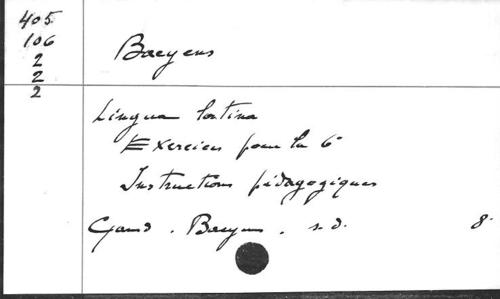 405
106
2
2
2
Baeyens
Lingua latina
Exercices pour la 6e
Instructions pédagogiques
Gand. Baeyens. s.d. 8°